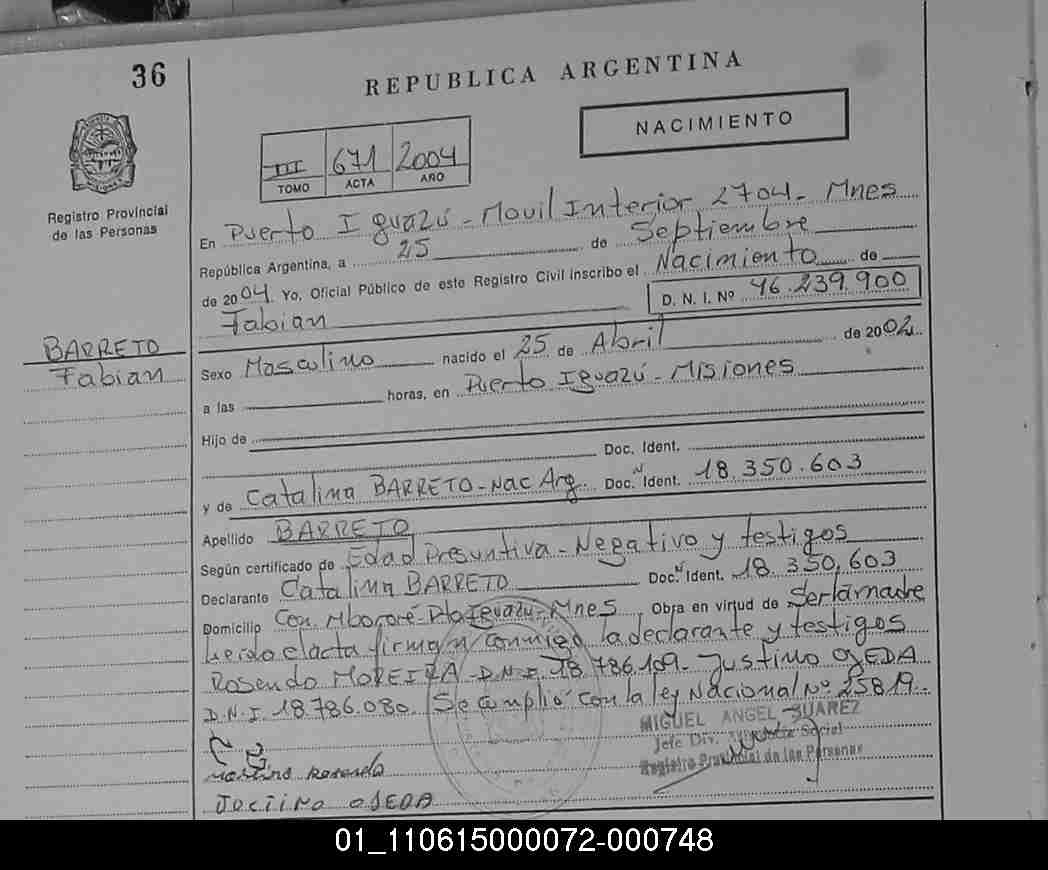 36
REPUBLICA ARGENTINA
NACIMIENTO
III 671 2004
TOMO ACTA AÑO
Registro Provincial
de las Personas
En Puerto Iguazú - Movil Interior 2704 - Mnes
República Argentina, a 25 de Septiembre
de 2004. Yo, Oficial Público de este Registro Civil inscribo el Nacimiento de
D. N. I. Nº 46.239.900
Fabian
BARRETO
Fabian
Sexo Masculino nacido el 25 de Abril de 2002
a las horas, en Puerto Iguazú - Misiones
Hijo de
Doc. Ident.
y de Catalina BARRETO - Nac Arg. Doc. N Ident. 18.350.603
Apellido BARRETO
Según certificado de Edad Presuntiva - Negativo y testigos
Declarante Catalina BARRETO Doc. N Ident. 18.350.603
Domicilio Com. Mbororé - Pto Iguazu - Mnes Obra en virtud de Ser la madre
leida el acta firman conmigo la declarante y testigos
Rosendo MOREIRA D.N.I. 18.786.109 - Justino OJEDA
D.N.I. 18.786.080. Se cumplió con la ley Nacional Nº 25819.
MIGUEL ANGEL SUAREZ
Jefe Div. Social
Registro Provincial de las Personas
C B
Rosendo
JOCTINO OJEDA
01_110615000072-000748